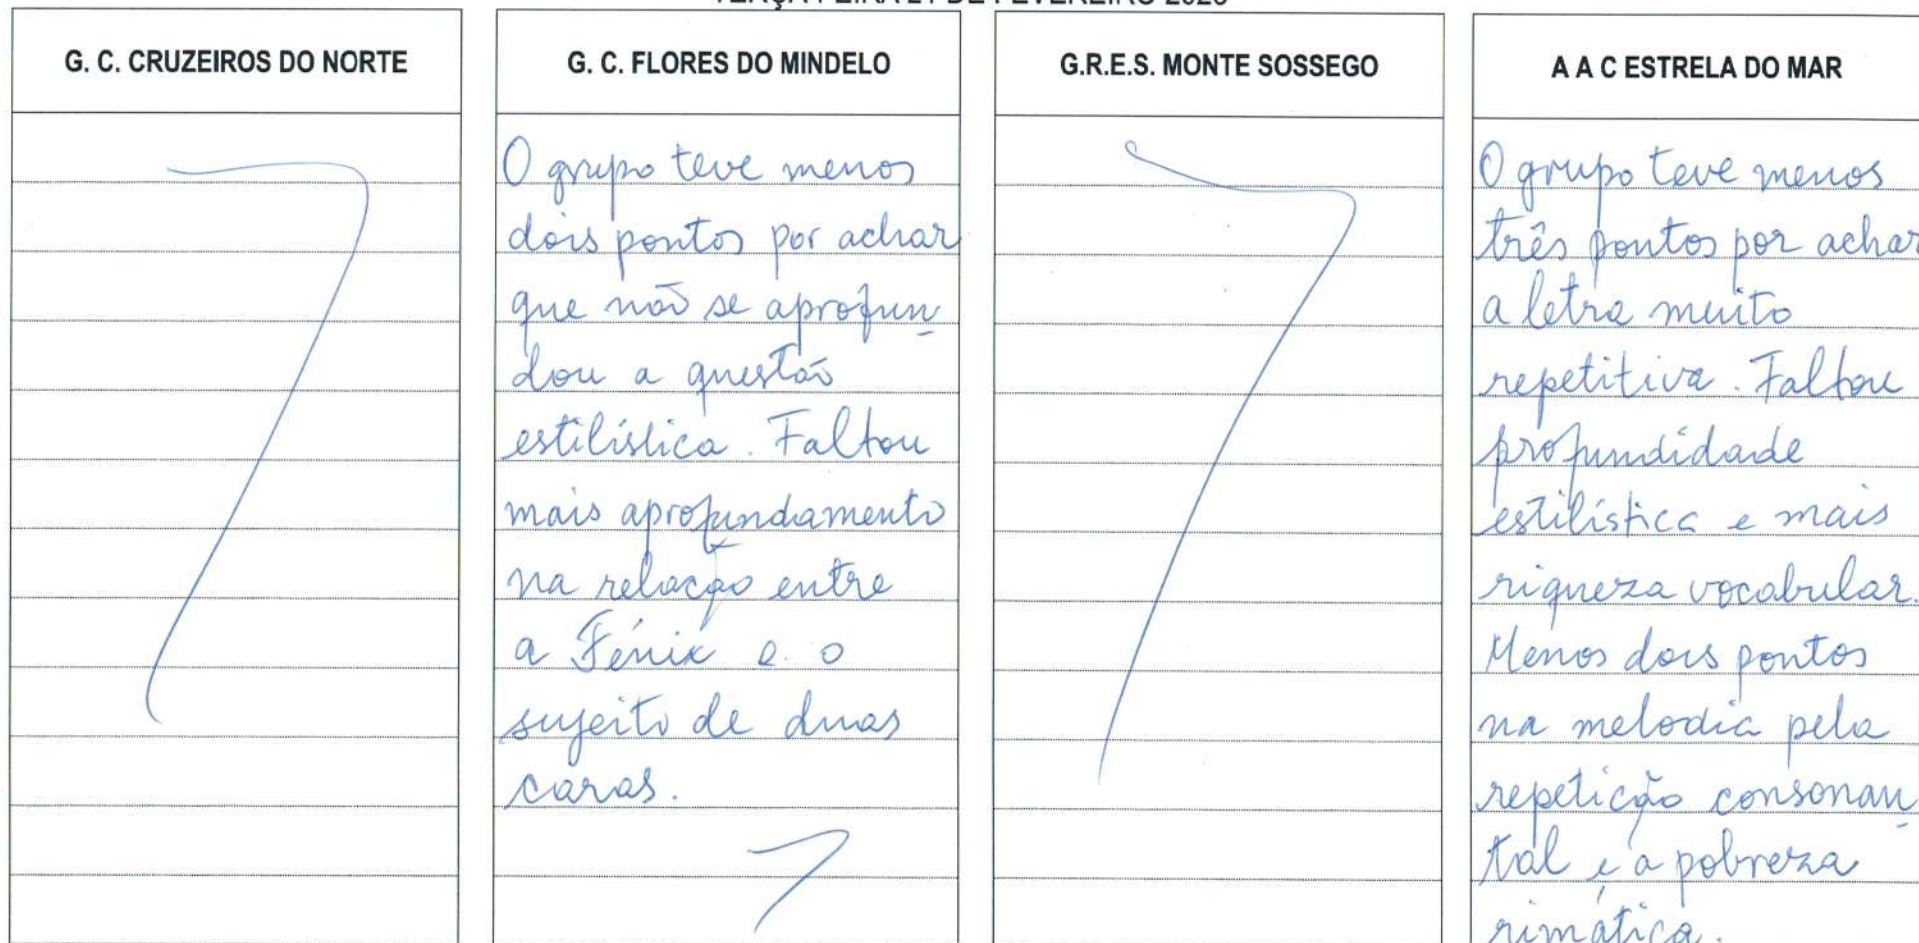 TERÇA FEIRA 21 DE FEVEREIRO 2023
G. C. CRUZEIROS DO NORTE
G. C. FLORES DO MINDELO
O grupo teve menos
dois pontos por achar
que não se aprofun
dou a questão
estilística. Faltou
mais aprofundamento
na relacção entre
a Fénix e o
sujeito de duas
caras.
G.R.E.S. MONTE SOSSEGO
A A C ESTRELA DO MAR
O grupo teve menos
três pontos por achar
a letra muito
repetitiva. Faltou
profundidade
estilística e mais
riqueza vocabular.
Menos dois pontos
na melodia pela
repetição consonan
tal e a pobreza
rimática.